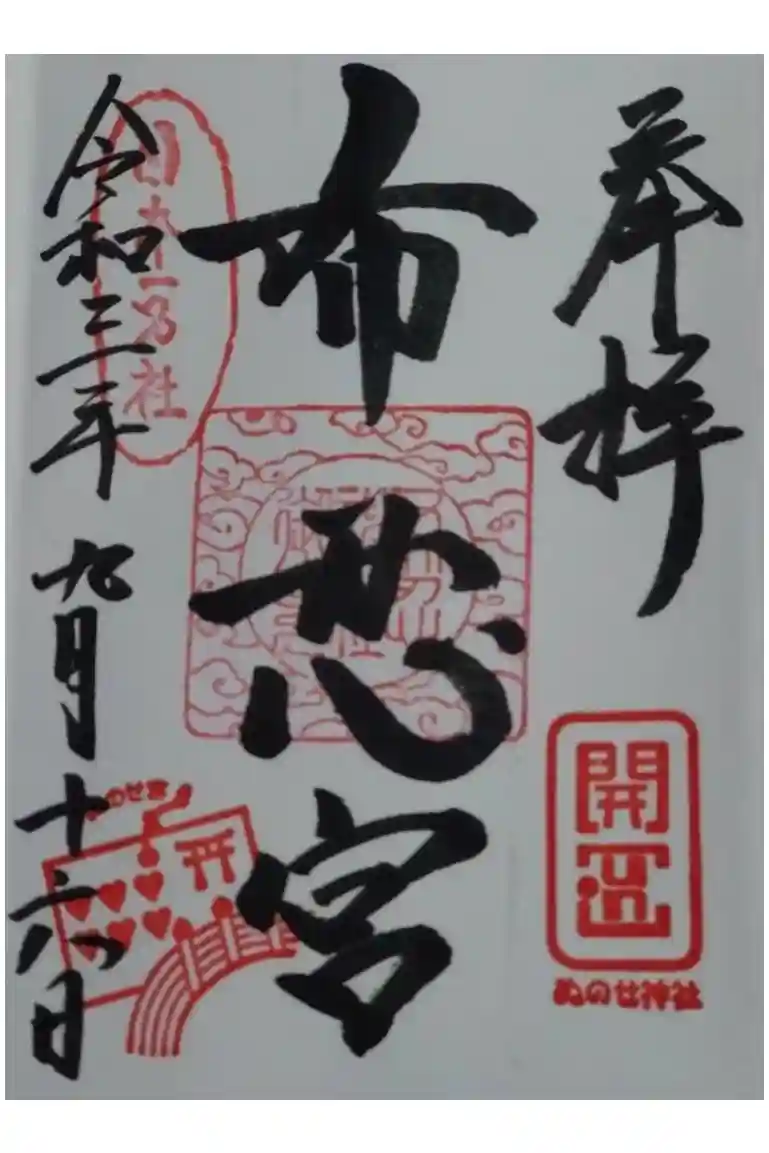 奉拝
開運
ぬのせ神社
布忍宮
令和三年九月十六日
ぬのせ宮